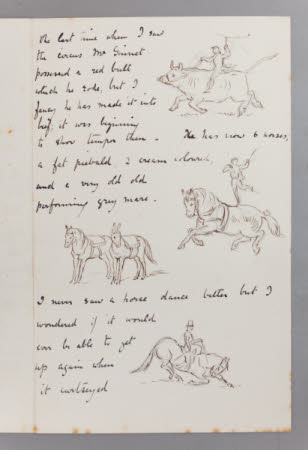 the last time when I saw
the circus Mr Ginnet
possessed a red bull
which he rode, but I
fancy he has made it into
beef, it was begining
to show temper then. He has now 6 horses,
a fat piebald, 2 cream coloured,
and a very old old
performing grey mare.
I never saw a horse dance better but I
wondered if it would
ever be able to get
up again when
it curtseyed